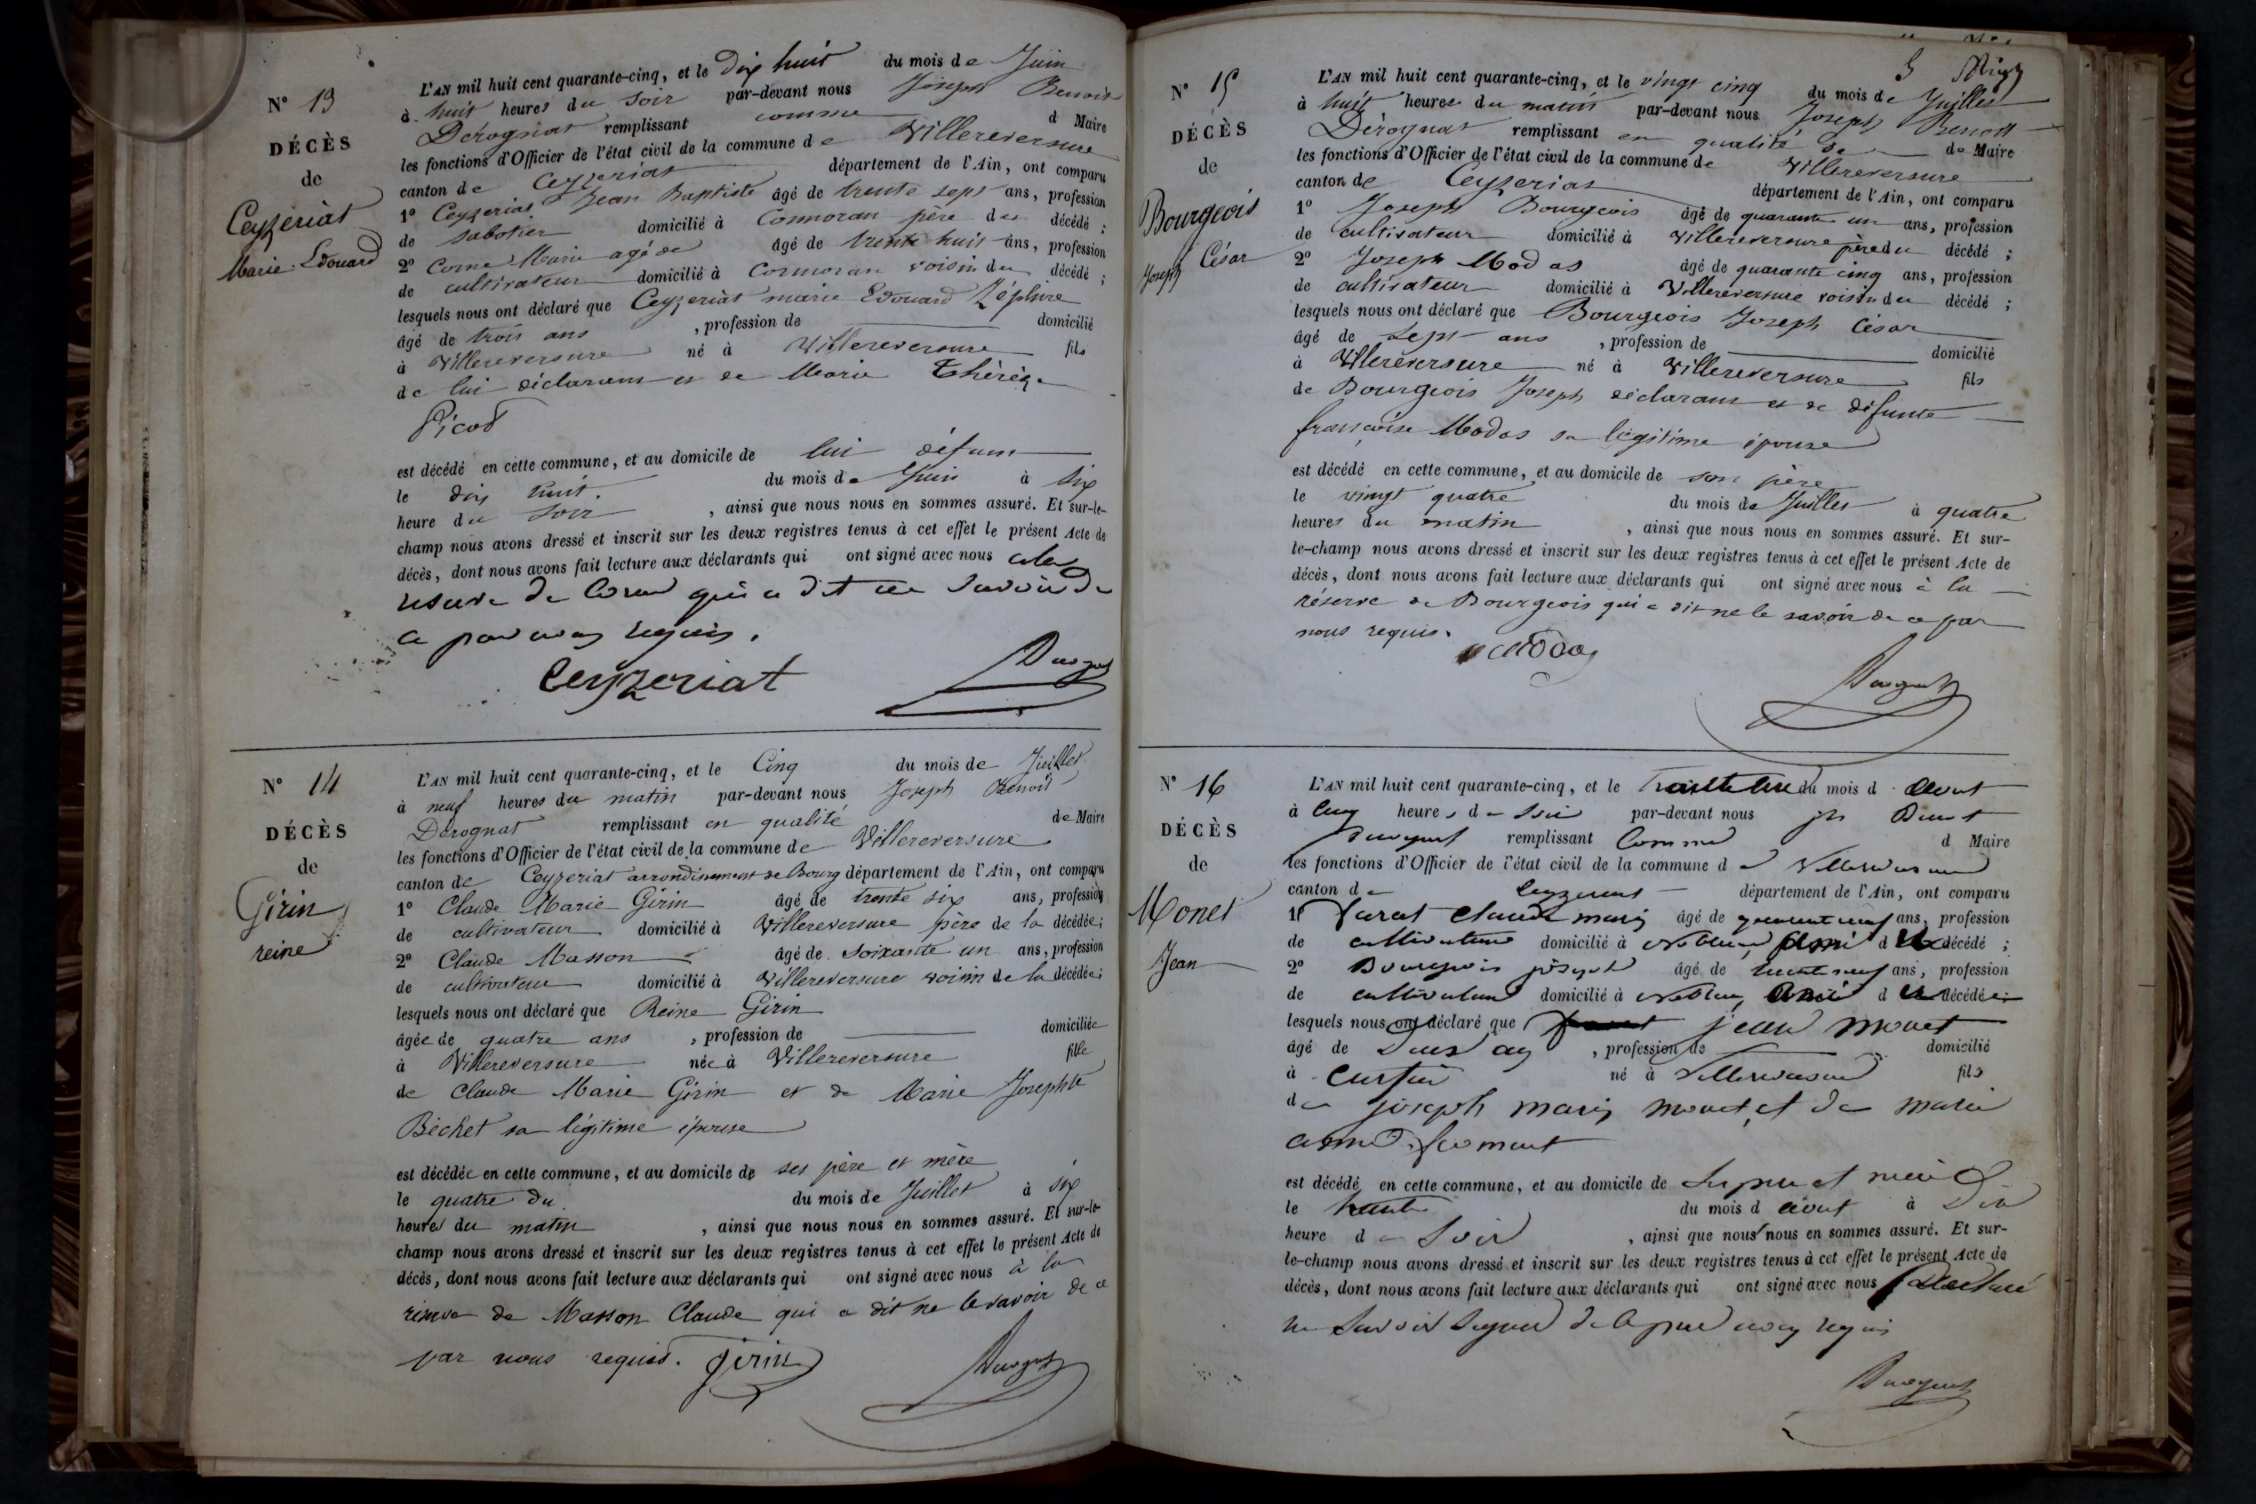 N° 13
DÉCÈS
de
Ceyzériat
Marie Edouard
L'AN mil huit cent quarante-cinq, et le dix huit du mois de Juin
à huit heures du soir par-devant nous Joseph Benoit
Dérognat remplissant comme d Maire
les fonctions d'Officier de l'état civil de la commune de Villereversure
canton de Ceyzeriat département de l'Ain, ont comparu
1° Ceyzeriat Jean Baptiste âgé de trente sept ans, profession
de sabotier domicilié à Cormoran père du décédé ;
2° Corne Marie agé de âgé de trente huit ans, profession
de cultivateur domicilié à Cormoran voisin du décédé ;
lesquels nous ont déclaré que Ceyzeriat marie Edouard Zéphire
âgé de trois ans , profession de domicilié
à Villereversure né à Villereversure fils
de lui déclarant et de Marie Thérèze
Picod
est décédé en cette commune, et au domicile de lui défunt
le dix huit. du mois de Juin à six
heure du soir , ainsi que nous nous en sommes assuré. Et sur-le-
champ nous avons dressé et inscrit sur les deux registres tenus à cet effet le présent Acte de
décès, dont nous avons fait lecture aux déclarants qui ont signé avec nous a la
reserve de Corne qui a dit ne savoir de
ce par nous requis.
Ceyzeriat
N° 14
DÉCÈS
de
Girin
reine
L'AN mil huit cent quarante-cinq, et le Cinq du mois de Juillet
à neuf heures du matin par-devant nous Joseph Benoit
Dérognat remplissant en qualité de Maire
les fonctions d'Officier de l'état civil de la commune de Villereversure
canton de Ceyzeriat arrondissement de Bourg département de l'Ain, ont comparu
1° Claude Marie Girin âgé de trente six ans, profession
de cultivateur domicilié à Villereversure père de la décédée ;
2° Claude Masson âgé de soixante un ans, profession
de cultivateur domicilié à Villereversure voisin de la décédée ;
lesquels nous ont déclaré que Reine Girin
âgée de quatre ans , profession de domiciliée
à Villereversure née à Villereversure fille
de Claude Marie Girin et de Marie Josephte
Béchet sa légitime épouse
est décédée en cette commune, et au domicile de ses père et mère
le quatre du du mois de Juillet à six
heures du matin , ainsi que nous nous en sommes assuré. Et sur-le-
champ nous avons dressé et inscrit sur les deux registres tenus à cet effet le présent Acte de
décès, dont nous avons fait lecture aux déclarants qui ont signé avec nous à la
réserve de Masson Claude qui a dit ne le savoir de ce
par nous requis. girin
N° 15
DÉCÈS
de
Bourgeois
Joseph César
L'AN mil huit cent quarante-cinq, et le vingt cinq du mois de Juillet
à huit heures du matin par-devant nous Joseph Benoit
Dérognat remplissant en qualité de de Maire
les fonctions d'Officier de l'état civil de la commune de Villereversure
canton de Ceyzeriat département de l'Ain, ont comparu
1° Joseph Bourgeois âgé de quarante un ans, profession
de cultivateur domicilié à Villereversure père du décédé ;
2° Joseph Modas âgé de quarante cinq ans, profession
de cultivateur domicilié à Villereversure voisin du décédé ;
lesquels nous ont déclaré que Bourgeois Joseph César
âgé de sept ans , profession de domicilié
à Villereversure né à Villereversure fils
de Bourgeois Joseph déclarant et de défunte
françoise Modas sa légitime épouse
est décédé en cette commune, et au domicile de son père
le vingt quatre du mois de Juillet à quatre
heures du matin , ainsi que nous nous en sommes assuré. Et sur-
le-champ nous avons dressé et inscrit sur les deux registres tenus à cet effet le présent Acte de
décès, dont nous avons fait lecture aux déclarants qui ont signé avec nous à la
réserve de Bourgeois qui a dit ne le savoir de ce par
nous requis.
Modas
N° 16
DÉCÈS
de
Monet
Jean
L'AN mil huit cent quarante-cinq, et le du mois d aout
à cinq heures de soir par-devant nous jh Benoit
Derognat remplissant Comme d Maire
les fonctions d'Officier de l'état civil de la commune de Villereversure
canton de Ceyzeriat département de l'Ain, ont comparu
1° Farat claude marie âgé de quarante neuf ans, profession
de cultivateur domicilié à d décédé ;
2° Bourgeois joseph âgé de trente neuf ans, profession
de cultivateur domicilié à d décédé ;
lesquels nous ont déclaré que jean monet
âgé de Deux ans , profession de domicilié
à né à Villereversure fils
de joseph marie monet, et de marie
froment
est décédé en cette commune, et au domicile de père et mère
le trente du mois d aout à Dix
heure de Soir , ainsi que nous nous en sommes assuré. Et sur-
le-champ nous avons dressé et inscrit sur les deux registres tenus à cet effet le présent Acte de
décès, dont nous avons fait lecture aux déclarants qui ont signé avec nous
ne Savoir Signer de ce par nous requis
Derognat